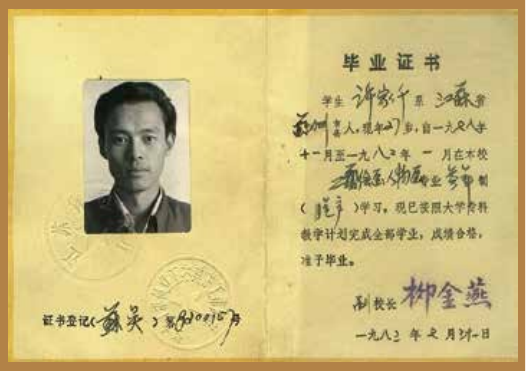 毕业证书
学生 许家千 系 江苏省
苏州市县人，现年27岁，自一九七八年
十一月至一九八二年 一 月在本校
人物画专业 叁年制
（ ）学习，现已按照大学专科
教学计划完成全部学业，成绩合格，
准予毕业。
副校长 柳金燕
一九八二年 月 一日
证书登记（苏吴）第820015号